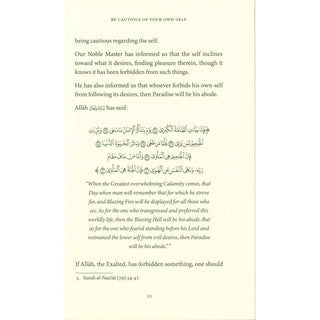 BE CAUTIOUS OF YOUR OWN-SELF
being cautious regarding the self.
Our Noble Master has informed us that the self inclines
toward what it desires, finding pleasure therein, though it
knows it has been forbidden from such things.
He has also informed us that whoever forbids his own-self
from following its desires, then Paradise will be his abode.
Allāh has said:
﴿فَإِذَا جَاءَتِ الطَّامَّةُ الْكُبْرَىٰ ۝ يَوْمَ يَتَذَكَّرُ الْإِنسَانُ مَا سَعَىٰ ۝ وَبُرِّزَتِ
الْجَحِيمُ لِمَن يَرَىٰ ۝ فَأَمَّا مَن طَغَىٰ ۝ وَآثَرَ الْحَيَاةَ الدُّنْيَا ۝
فَإِنَّ الْجَحِيمَ هِيَ الْمَأْوَىٰ ۝ وَأَمَّا مَنْ خَافَ مَقَامَ
رَبِّهِ وَنَهَى النَّفْسَ عَنِ الْهَوَىٰ ۝ فَإِنَّ الْجَنَّةَ هِيَ الْمَأْوَىٰ ۝﴾
"When the Greatest overwhelming Calamity comes, that
Day when man will remember that for which he strove
for, and Blazing Fire will be displayed for all those who
see. As for the one who transgressed and preferred this
worldly life, then the Blazing Hell will be his abode. But
as for the one who feared standing before his Lord and
restrained the lower self from evil desires, then Paradise
will be his abode."³
If Allāh, the Exalted, has forbidden something, one should
3. Surah al-Nazi'āt (79):34-41.
23